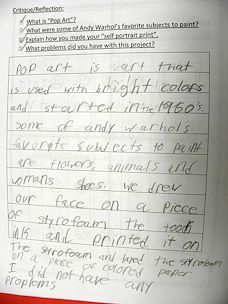 Critique/Reflection:
What is "Pop Art"?
What were some of Andy Warhol's favorite subjects to paint?
Explain how you made your "self portrait print".
What problems did you have with this project?
POP art is art that
is used with bright colors
and started in the 1960's.
some of andy warhols
favorite subjects to paint
are flowers, animals and
womans shoes. we drew
our face on a piece
of styrofoam the took
ink and printed it on
The styrofoam and layed the styrofoam
on a piece of colored paper.
I did not have any
problems